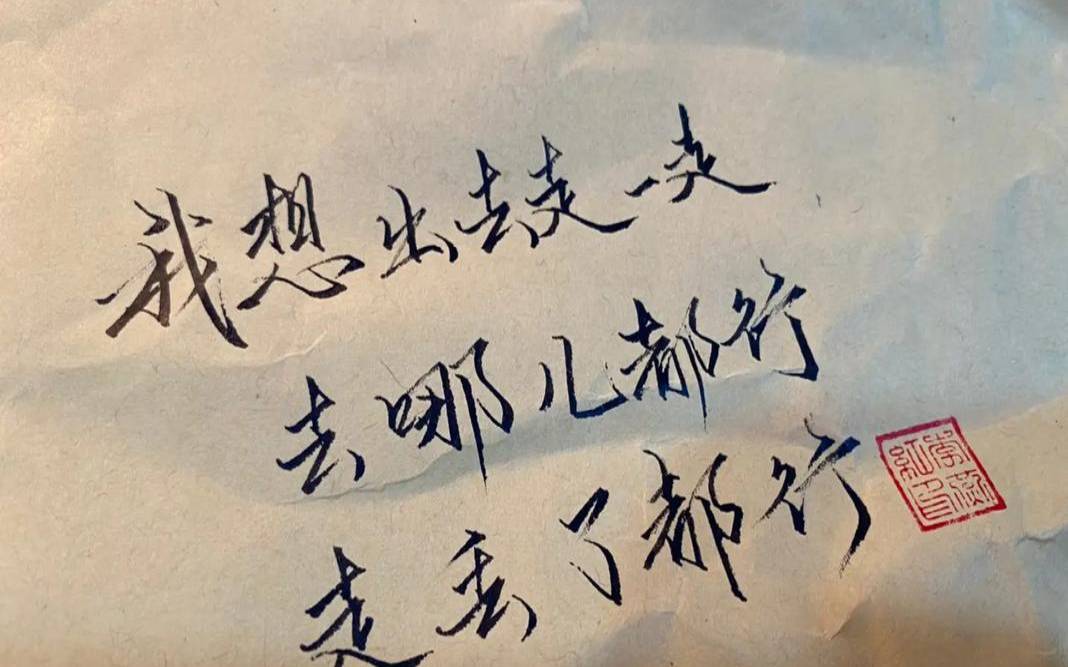 我想出去走一走
去哪儿都行
走丢了都行